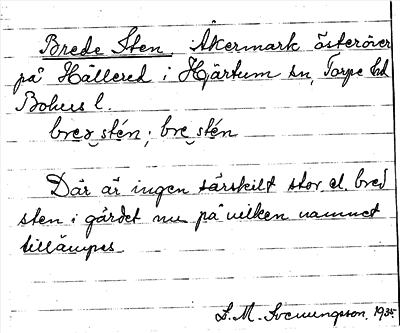 Brede Sten. Åkermark österöver
på Hällered i Hjärtum sn, Torpe hd
Bohus l.
breɂ stén; bre stén
Där är ingen särskilt stor el. bred
sten i gärdet nu på vilken namnet
tillämpes.
S. M. Svenungsson. 1935